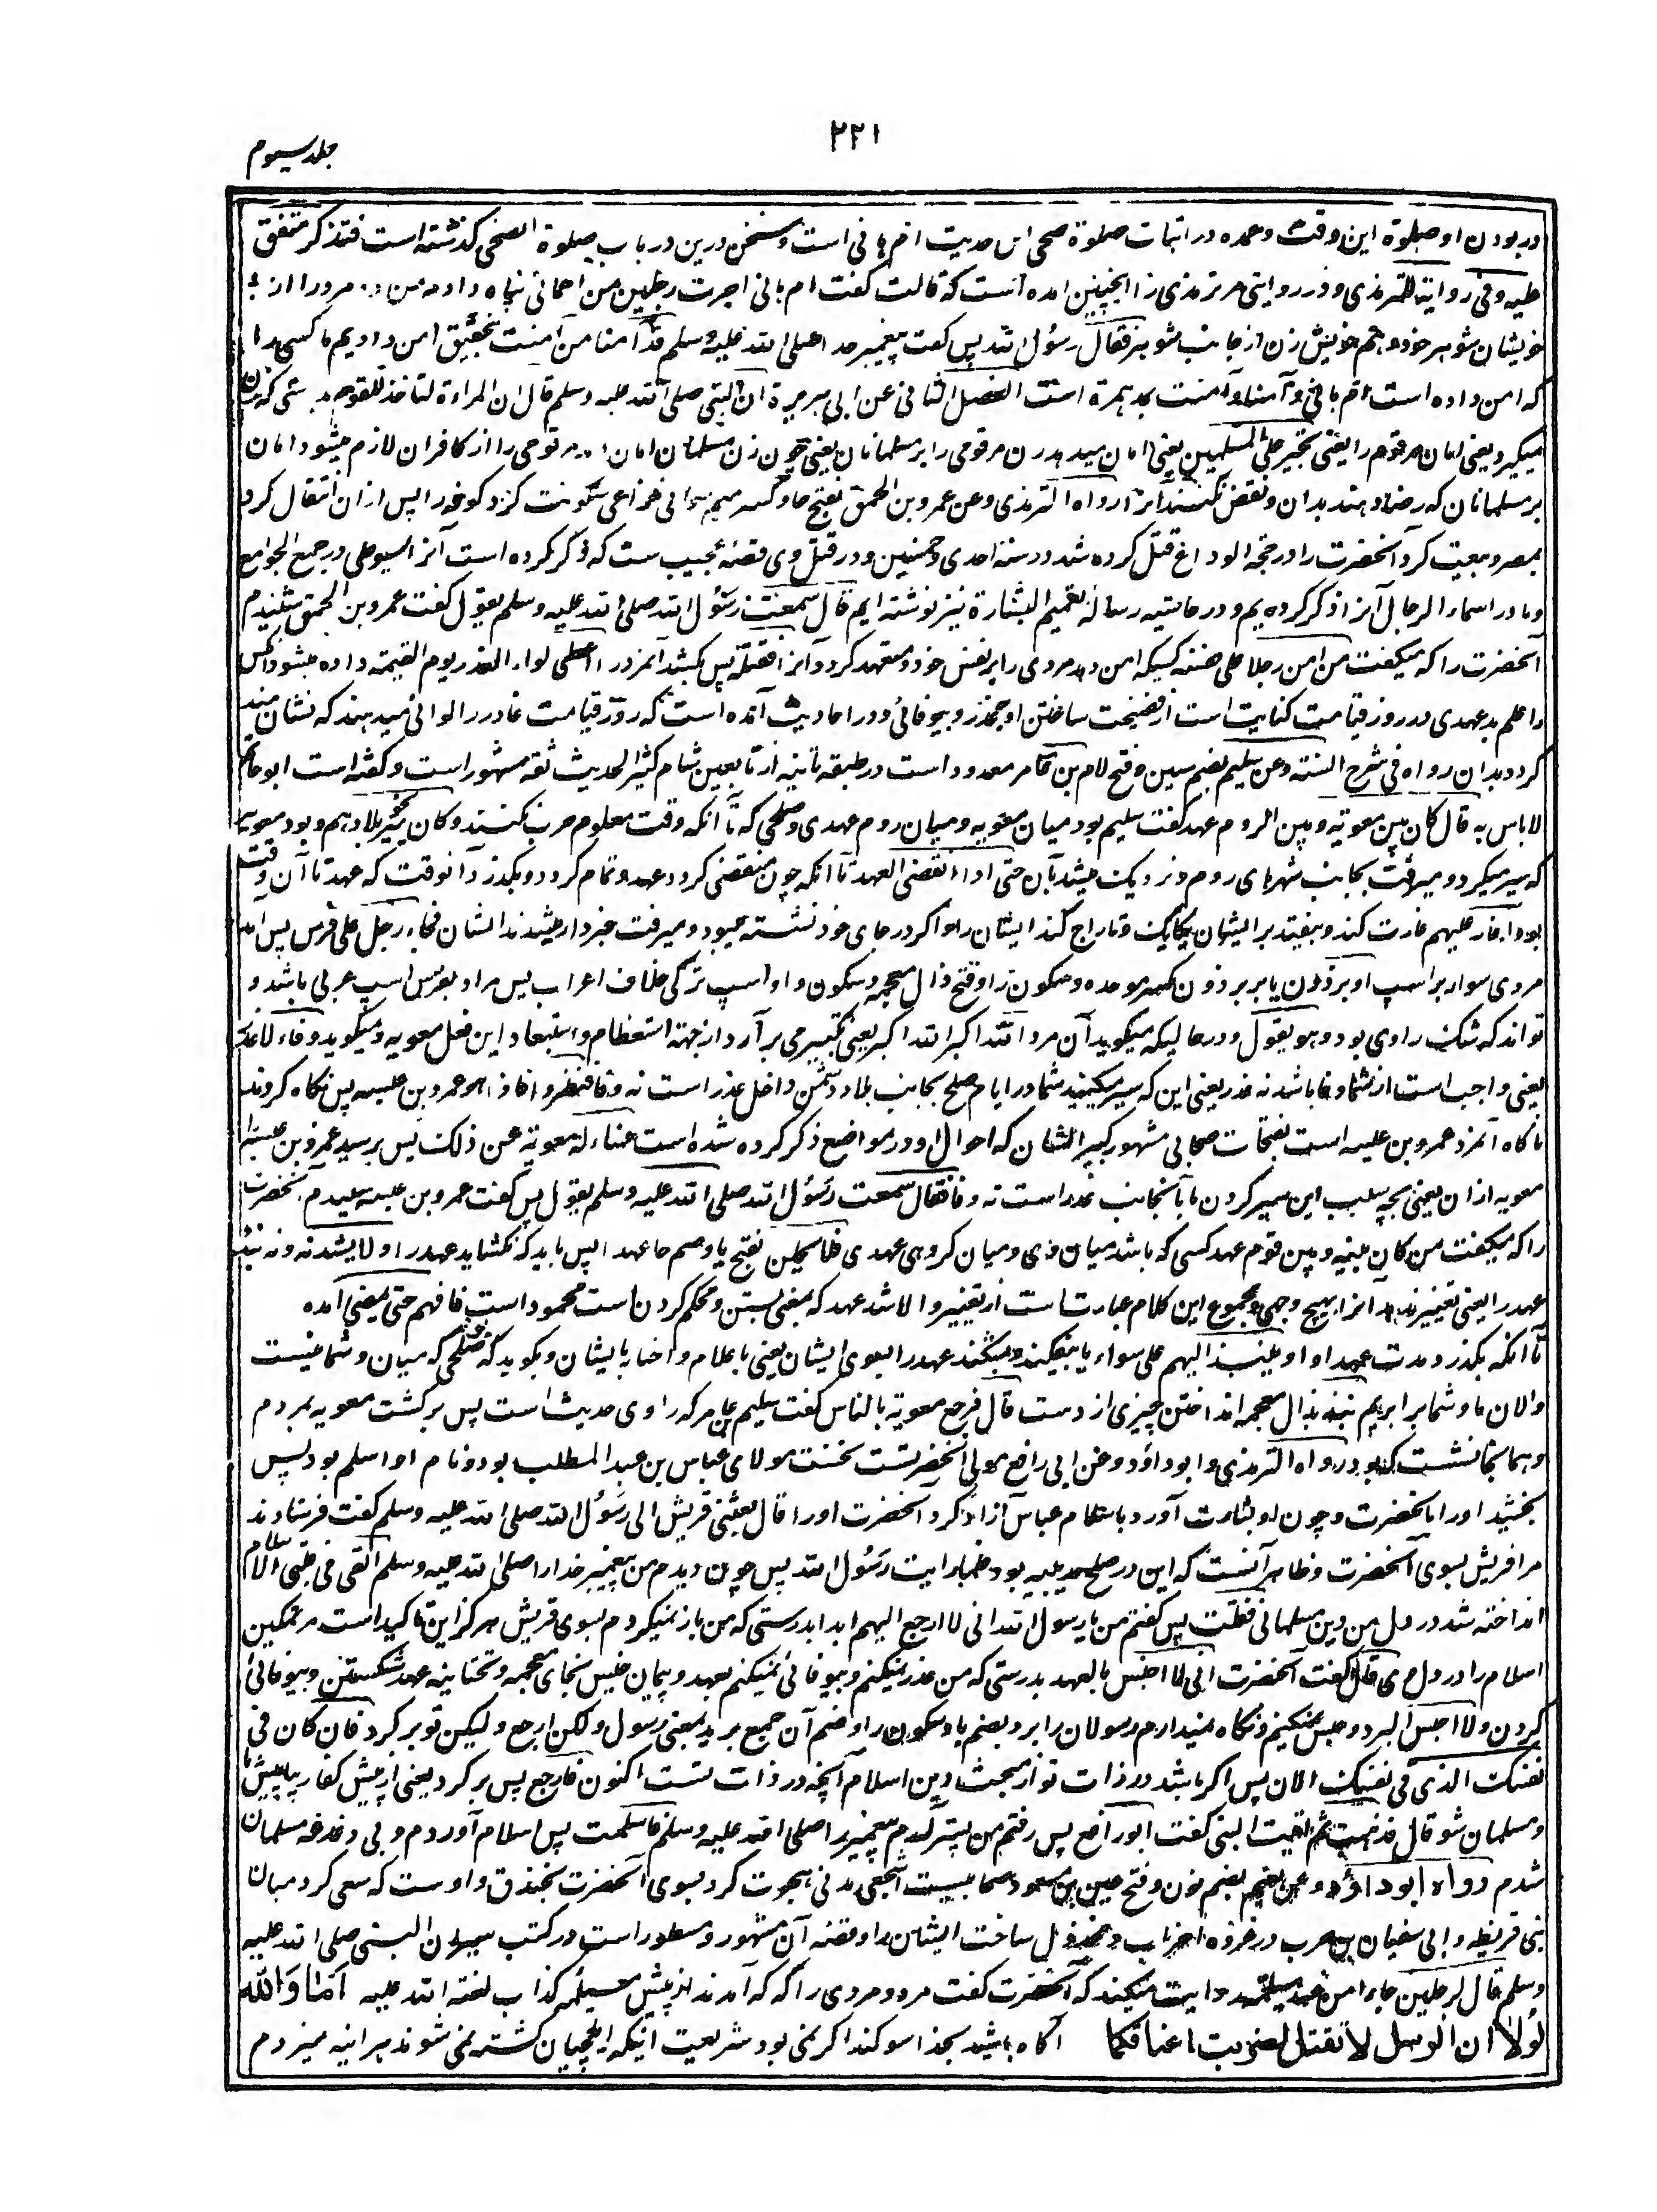 ۲۲۱
جلد سیوم
در بودن او صلوة این وقت و عمده در اثبات صلوة ضحی این حدیث ام هانی است و سخن درین در باب صلوة الضحی گذشته است فتذکر متفق
علیه وفی روایة للترمذی و در روایتی مر ترمذی را اینچنین آمده است که قالت گفت ام هانی اجرت رجلین من احمائی پناه دادم من دو مرد را از
خویشان شوهر خود و هم خویش زن از جانب شوهر فقال رسول الله پس گفت پیغمبر خدا صلی الله علیه وسلم قد آمنا من آمنت بتحقیق امن دادیم ما کسی را
که امن داده است ام هانی و آمنا و آمنت بمد همزة است الفصل الثانی عن ابی هریرة ان النبی صلی الله علیه وسلم قال ان المراءة لتاخذ للقوم بدرستی که زن
میگیرد یعنی امان مر قوم را یعنی تجیر علی المسلمین یعنی امان میدهد زن مر قومی را بر مسلمانان یعنی چون زن مسلمان امان دهد مر قومی را از کافران لازم میشود امان
بر مسلمانان که رضا دهند بدان و نقض نکنند آنرا رواه الترمذی وعن عمرو بن الحمق بفتح حا و کسر میم خزاعی سکونت کرد کوفه را پس از ان انتقال کرد
بمصر و بیعت کرد آنحضرت را در حجة الوداع قتل کرده شد در سنه احدی و خمسین و در قتل وی قصهٔ عجیب ست که ذکر کرده است آنرا سیوطی در جمع الجوامع
و ما در اسماء الرجال آنرا ذکر کرده‌ایم و در حاشیه رسالهٔ تعمیم البشارة نیز نوشته ایم قال سمعت رسول الله صلی الله علیه وسلم یقول گفت عمرو بن الحمق شنیدم
آنحضرت را که میگفت من امن رجلا علی نفسه کسیکه امن دهد مردی را بر نفس خود و متعهد کرد و آنرا فقتله پس بکشد آنمرد را اعطی لواء الغدر یوم القیمة داده میشود آنکس
را علم بد عهدی در روز قیامت کنایت است از فضیحت ساختن او بغدر و بیوفائی و در احادیث آمده است که روز قیامت غادر را لوائی میدهند که نشان مند
گردد بدان رواه فی شرح السنة وعن سلیم بضم سین و فتح لام بن عامر معدود است در طبقه ثانیه از تابعین شام کثیر الحدیث ثقه مشهور است و گفته است ابو حاتم
لا باس به قال کان بین معویة وبین الروم عهد گفت سلیم بود میان معویه و میان روم عهدی و صلحی که تا آنکه وقت معلوم حرب نکنند وکان یسیر نحو بلادهم و بود معویه
که سیر میکرد و میرفت بجانب شهرهای روم و نزدیک میشد بآن حتی اذا انقضی العهد تا آنکه چون منقضی گردد عهد و تمام گردد و بگذرد آنوقت که عهد تا آن وقت
بود اغار علیهم غارت کند و بیفتد بر ایشان یکایک و تاراج کند ایشان را و اگر در جای خود نشسته میبود و میرفت خبردار میشدند ایشان فجاء رجل علی فرس پس آمد
مردی سوار بر اسپ او برذون یا بر برذون بکسر موحده و سکون را و فتح ذال معجمه و سکون واو اسپ ترکی خلاف اعراب پس مراد بفرس اسپ عربی باشد و
تواند که شک راوی بود و هو یقول و در حالیکه میگوید آن مرد الله اکبر الله اکبر یعنی تکبیر می برآرد از جهة استعظام و استبعاد این فعل معویه و میگوید وفاء لا غدر
یعنی واجب است از شما وفا باشد نه غدر یعنی این که سیر میکنید شما در ایام صلح بجانب بلاد دشمن داخل غدر است نه وفا فنظروا فاذا هو عمرو بن عبسه پس نگاه کردند
ناگاه آنمرد عمرو بن عبسه است بفتحات صحابی مشهور کبیر الشان که احوال او در مواضع ذکر کرده شده است فساءله معویة عن ذلک پس پرسید عمرو بن عبسه را
معویه از ان یعنی بچه سبب این سیر کردن ما بآنجانب غدر است نه وفا فقال سمعت رسول الله صلی الله علیه وسلم یقول پس گفت عمرو بن عبسه شنیدم آنحضرت
را که میگفت من کان بینه وبین قوم عهد کسی که باشد میان وی و میان گروهی عهدی فلا یحلن بفتح یا و ضم حا عهدا پس باید که نکشاید عهد را ولا یشدنه و نه بندد
عهد را یعنی تغییر ندهد آنرا بهیچ وجهی و مجموع این کلام عبارت است از تغییر و الا شد عهد که بمعنی بستن و محکم کردن است محمود است فافهم حتی یمضی امده
تا آنکه بگذرد مدت عهد او او ینبذ الیهم علی سواء یا بیفکند و بشکند عهد را بسوی ایشان یعنی باعلام و اخبار بایشان و بگوید که صلحی که میان و شما نیست
والان ما و شما برابریم نبذ بذال معجمه انداختن چیزی از دست قال فرجع معویة بالناس گفت سلیم بن عامر که راوی حدیث است پس برگشت معویه بمردم
و همانجا نشست که بود رواه الترمذی و ابو داود وعن ابی رافع مولی آنحضرتست نخست مولای عباس بن عبد المطلب بود و نام او اسلم بود پس
بخشید او را بآنحضرت و چون او بشارت آورد باسلام عباس آزاد کرد آنحضرت او را قال بعثنی قریش الی رسول الله صلی الله علیه وسلم گفت فرستادند
مرا قریش بسوی آنحضرت و ظاهر آنست که این در صلح حدیبیه بود فلما رایت رسول الله پس چون دیدم من پیغمبر خدا را صلی الله علیه وسلم القی فی قلبی الاسلام
انداخته شد در دل من دین مسلمانی فقلت پس گفتم من یا رسول الله انی لا ارجع الیهم ابدا بدرستی که من باز نمیگردم بسوی قریش هرگز این تاکید است مر تمکین
اسلام را در دل وی قال گفت آنحضرت انی لا اخیس بالعهد بدرستی که من غدر نمیکنم و بیوفائی نمیکنم بعهد و پیمان خیس بخای معجمه و تحتانیه عهد شکستن و بیوفائی
کردن ولا احبس البرد و حبس نمیکنم و نگاه نمیدارم رسولان را برد بضم با و سکون را و ضم آن جمع برید بمعنی رسول ولکن ارجع ولیکن تو برگرد فان کان فی
نفسک الذی فی نفسک الان پس اگر باشد در ذات تو از محبت دین اسلام آنچه در ذات تست اکنون فارجع پس برگرد یعنی از پیش کفار بیا پیش ما
و مسلمان شو قال فذهبت ثم اتیت النبی گفت ابو رافع پس رفتم من پستر آمدم پیغمبر را صلی الله علیه وسلم فاسلمت پس اسلام آوردم و بی دغدغه مسلمان
شدم رواه ابو داؤد وعن نعیم بضم نون و فتح عین بن مسعود صحابیست اشجعی مدنی هجرت کرد بسوی آنحضرت بخندق و اوست که سعی کرد میان
بنی قریظه و ابی سفیان بن حرب در غزوه احزاب و مخذول ساخت ایشان را و قصه آن مشهور و مسطور است در کتب سیر ان النبی صلی الله علیه
وسلم قال لرجلین جاءا من عند مسیلمة روایت میکند که آنحضرت گفت مر دو مردی را که که آمدند از پیش مسیلمه کذاب لعنة الله علیه اما والله
لولا ان الرسل لا تقتل لضربت اعناقکما آگاه باشید بخدا سوگند اگر نمی بود شریعت اینکه ایلچیان کشته نمی شوند هرآینه میزدم